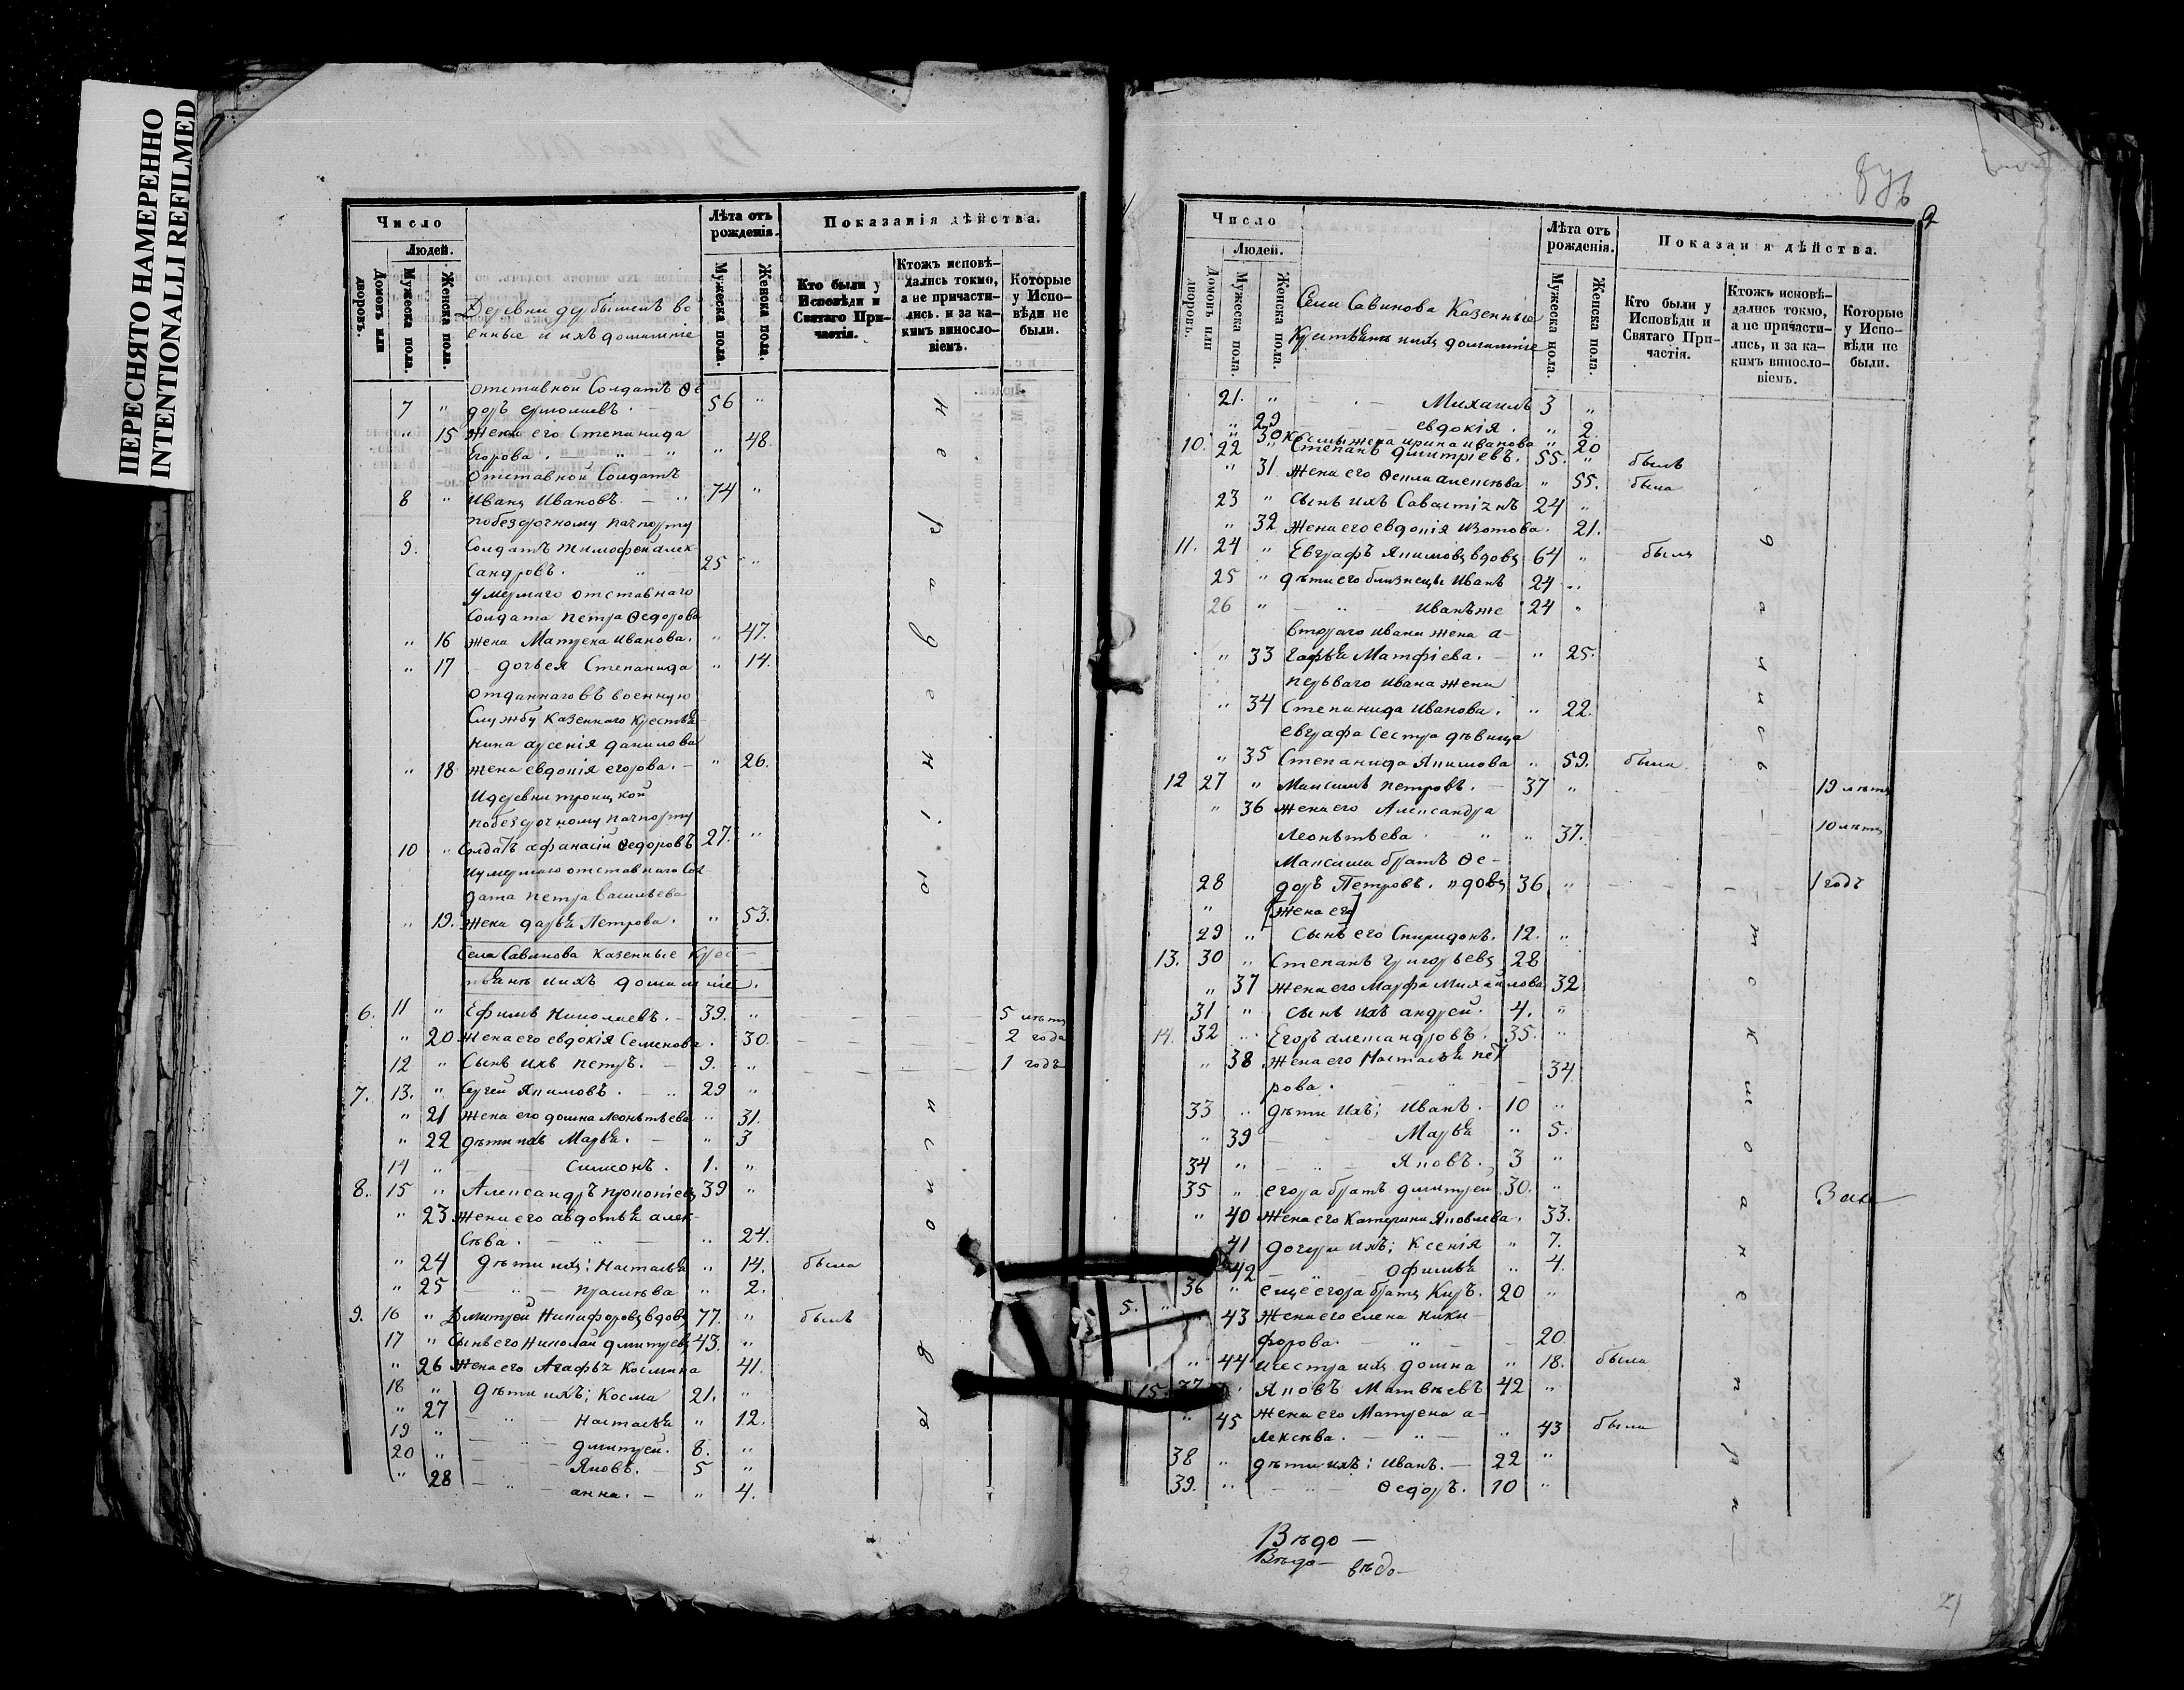 ПЕРЕСНЯТО НАМЕРЕННО
INTENTIONALLI REFILMED
Число
Людей.
Домовъ или дворовъ.
Мужеска пола.
Женска пола.
Деревни дербышевъ во
енные и ихъ домашніе
Лѣта отъ рожденія.
Мужеска пола.
Женска пола.
Показанія дѣйства.
Кто были у Исповѣди и Святаго Причастія.
Ктожъ исповѣдались токмо, а не причастились. и за какимъ винословіемъ.
Которые у Исповѣди не были.
отставной Солдатъ Ѳе
7 " доръ ермолаевъ. 56 "
" 15 Жена его Степанида 48.
Егорова. "
Отставной Солдатъ
8 " Иванъ Ивановъ. 74 "
побезсрочному пачпорту
9. Солдатъ тимофей алек
сандровъ. 25 "
умершаго отставнаго
Солдата петра Ѳедорова
" 16 жена Матрена иванова. " 47.
" 17 дочь ея Степанида " 14.
отданнаго въ военную
Службу казеннаго крестья
нина арсенія данилова
" 18 жена евдокія егорова. " 26.
И деревни троицкой
побезсрочному пачпорту
10 " Солдатъ афанасій Ѳедоровъ 27. "
и умершаго отставнаго Сол
дата петра Васильева
" 19. жена дарья Петрова. " 53.
Села Савинова казенные крес
тьяне и ихъ домашніе.
6. 11 " Ефимъ Николаевъ. 39. " 5 лѣтъ
" 20 Жена его евдокія Семенова. 30. 2 года
12 " Сынъ ихъ петръ. 9. " 1 годъ
7. 13. " Сергей Якимовъ. 29 "
" 21 Жена его домна леонтьева " 31.
" 22 дѣти ихъ Марья. " 3
14 " Симеонъ. 1. "
8. 15 " Александръ прокопіевъ 39 "
" 23 Жена его авдотья алек
сѣева. " 24.
" 24 дѣти ихъ; Настасья " 14. была
" 25 прасковья " 2.
9. 16 " Дмитрей Никифоровъ вдовъ 77. " былъ
17 " Сынъ его Николай дмитріевъ 43. "
" 26 Жена его Агафья Космина 41.
18 " дѣти ихъ; Косма 21. "
" 27 настасья " 12.
19 " дмитрей. 8. "
20 " Яковъ. 5 "
" 28 анна. " 4.
нерадению исповѣ
9
Число
Людей.
Домовъ или дворовъ.
Мужеска пола.
Женска пола.
Села Савинова Казенные
Крестьяне и ихъ домашніе
Лѣта отъ рожденія.
Мужеска пола.
Женска пола.
Показанія дѣйства.
Кто были у Исповѣди и Святаго Причастія.
Ктожъ исповѣдались токмо, а не причастились, и за какимъ винословіемъ.
Которые у Исповѣди не были.
21. " Михаилъ 3 "
" 29 евдокія. " 2.
" 30 Космы жена ирина иванова " 20
10. 22 " Степанъ дмитріевъ. 55. " былъ
" 31 Жена его Ѳекла алексѣева " 55. была
23 " сынъ ихъ Савастіянъ 24 "
" 32 жена его евдокія Изотова. 21.
11. 24 " Евграфъ Якимовъ вдовъ 64 " былъ
25 " дѣти его близнецы Иванъ 24 "
26 " Иванъ же 24 "
втораго ивана жена а-
" 33 гафья Матфіева. " 25.
перьваго ивана жена
" 34 Степанида Иванова. " 22.
евграфа Сестра дѣвица
" 35 Степанида Якимова " 59. была
12 27 " Максимъ петровъ. 37 " 19 лѣтъ
" 36 жена его Александра
Леонтьева " " 37. 10 лѣтъ
Максима братъ Ѳе-
28 доръ Петровъ. вдовъ 36 " 1 годъ
" [жена его]
29 " сынъ его Спиридонъ. 12. "
13. 30 " Степанъ Григорьевъ 28
" 37 жена его Марфа Михайлова 32
31 " сынъ ихъ андрей. 4. "
14. 32 " Егоръ александровъ. 35. "
" 38 жена его Настасья пет
рова. 34
33 " дѣти ихъ; Иванъ. 10 "
" 39 Марья " 5.
34 " Яковъ. 3 "
35 " егора братъ дмитрей 30. "
" 40 жена его Катерина Яковлева. 33.
41 дочери ихъ; Ксенія " 7.
42 Офимья " 4.
36 " еще егора братъ Киръ. 20 "
43 жена его елена ники-
форова. 20
" 44 и сестра ихъ домна " 18. была
15. 37 " Яковъ Матвѣевъ 42 "
" 45 жена его Матрена а-
лексѣева. " 43 была
38 " дѣти ихъ: Иванъ. 22 "
39. " Ѳедоръ. 10 "
Вѣдо-
Вѣдо- вѣдо-